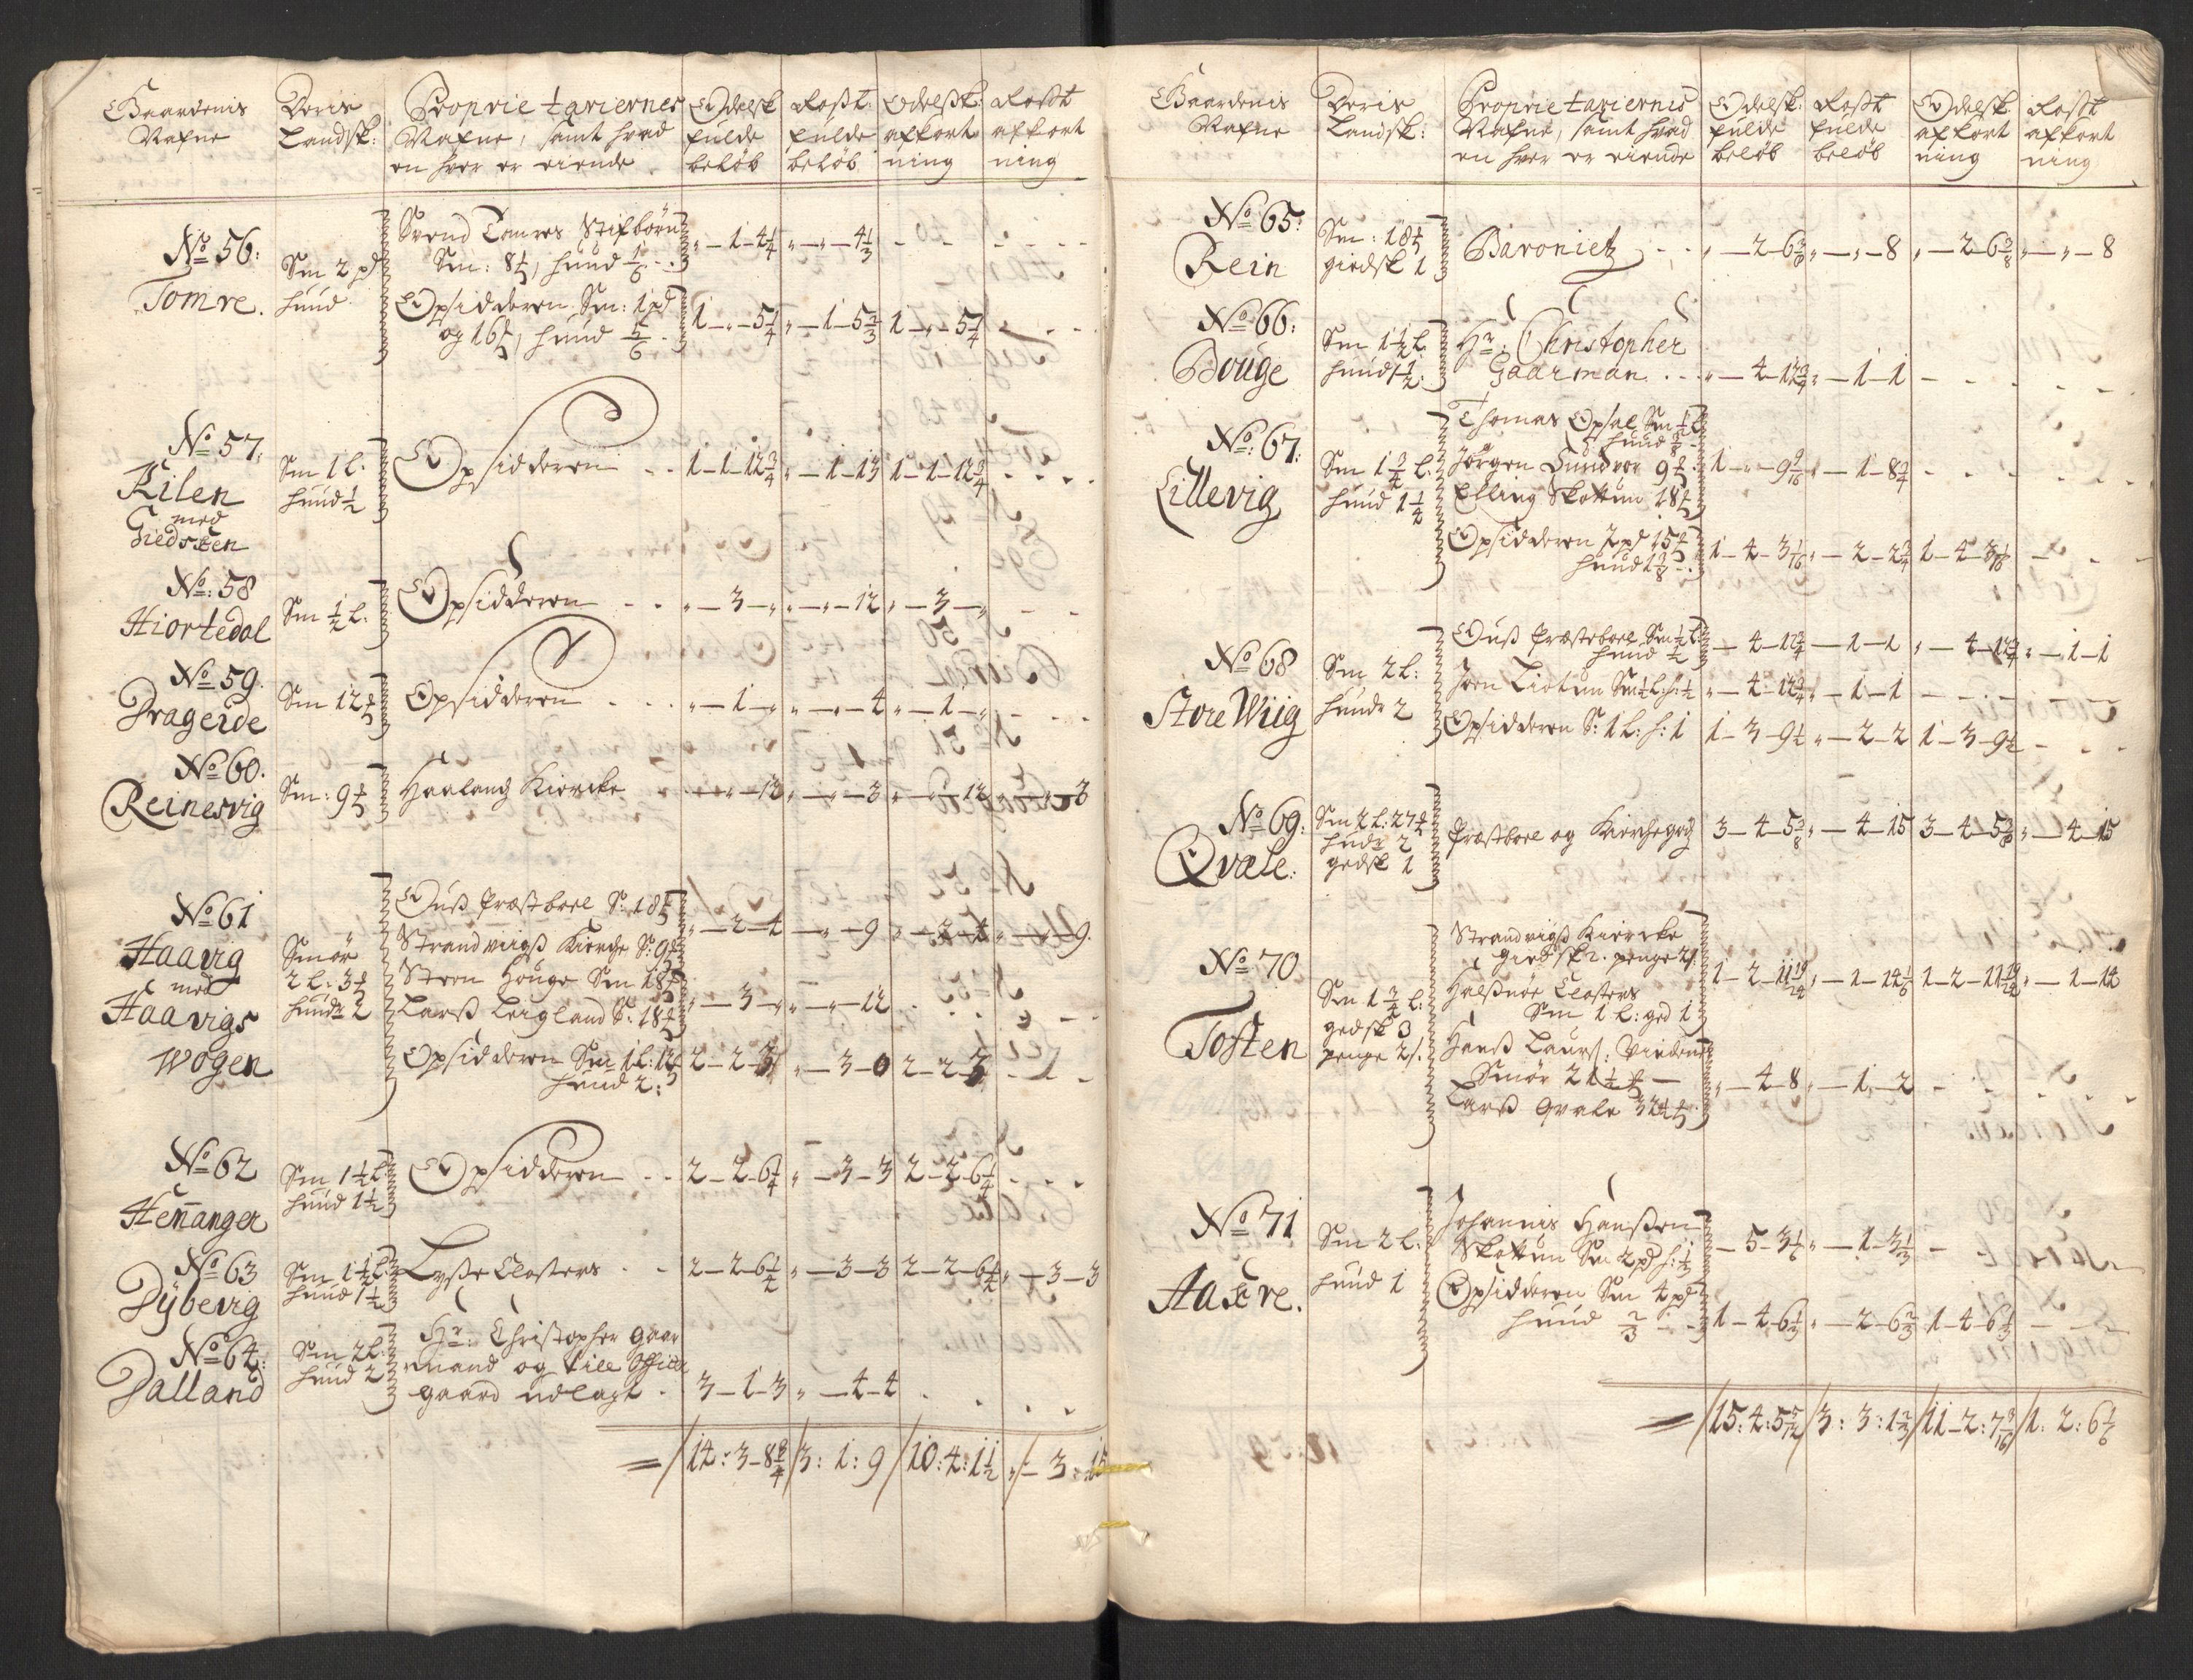 Gaardenis
Nafne
Deris
Landsk:
Proprietariernes
Nafne, samt hvad
en hver er eiende
Odelsk
fulde
beløb
Rosst:
fulde
beløb
Odelsk:
afkort
ning
Rosst
afkort
ning
No 56:
Tomre.
Sm 2 pd
huud
Svend Tomres Stifbørn
Sm: 8 , huud 1/6
" — 1 - 4 1/4 " — " — 4 1/3
Opsidderen Sm: 1 pd
og 16 , huud 5/6
1 — " — 5 1/4 " — 1 — 5 2/3 1 — " — 5 1/4
No 57:
Kilen
med
Giedsteen
Sm 1 l:
huud 1/2
Opsidderen
1 — 1 — 12 3/4 " — 1 — 13 1 — 1 — 12 3/4
No: 58
Hiortedal
Sm 1/2 l:
Opsidderen
" — 3 — " " — " — 12 " — 3 — "
No 59.
Drageide
Sm 12
Opsidderen
" — 1 — " " — " — 4 " — 1 — "
No 60.
Reinesvig
Sm: 9
Haaland Kiercke
" — " — 12 " — " — 3 " — " — 12 " — " — 3
No 61
Haavig
med
Haavigs
Wogen
Smør
2 l: 3
hude 2
Ouss Præstboel S: 18
Strandviigs Kierche S: 9
" — 2 — 4 " — " — 9 " — 2 — 4 " — " — 9.
Steen Houge Sm 18
Larss Leigland S: 18
" — 3 — " " — " — 12
Opsidderen Sm 1 l: 12
huud 2:
2 — 2 — 3 " — 3 — 0 2 — 2 — 3
No 62
Hennanger
Sm 1 1/2 l
huud 1 1/2
Opsidderen
2 — 2 — 6 1/4 " — 3 — 3 2 — 2 — 6 1/4
No 63
Dybevig
Sm 1 1/2 l:
huud 1 1/2
Lysse Closters
2 — 2 — 6 1/4 " — 3 — 3 2 — 2 — 6 1/4 " — 3 — 3
No 64:
Dalland
Sm 2 l:
huud 2
Hr: Christopher Gaar
mand og till Officer
gaard udlagt
3 — 1 — 3 " — 4 — 4
= /14: 3 — 8 3/4 /3: 1: 9 /10: 4: 1 1/2 "/ — 3: 15
Gaardenis
Nafne
Deris
Landsk:
Proprietariernis
Nafne, samt hvad
en hver er eiende
Odelsk:
fulde
beløb
Rosst
fulde
beløb
Odelsk
afkort
ning
Rosst
afkort
ning
No 65:
Rein
Sm: 18
giedsk 1
Baroniet
" — 2 — 6 3/8 " — " — 8 " — 2 — 6 3/8 " — " — 8
No 66:
Bouge
Sm 1 1/2 l:
huud 1 1/2:
Hr: Christopher
Gaarman
" — 4 — 12 3/4 " — 1 — 1
No: 67:
Lillevig
Sm 1 3/4 l:
huud 1 1/4
Thomas Opsal Sm 1/2 l
huud
Jørgen Sundvor 9
Elling Skottun 18
1 — " — 9 9/16 " — 1 — 8 3/4
Opsidderen 2 pd 15
huud
1 — 4 — 3 1/16 " — 2 — 2 3/4 1 — 4 — 3 1/16
No 68
Store Wiig
Sm 2 l:
hude 2
Ouss Præsteboel Sm 1/2 l:
huud 1/2
" — 4 — 12 3/4 — 1 — 1 " — 4 — 12 3/4 " — 1 — 1
Joen Liotun Sm 1/2 l: h: 1/2
" — 4 — 12 3/4 " — 1 — 1
Opsidderen S: 1 l: h: 1
1 — 3 — 9 1/2 " — 2 — 2 1 — 3 — 9 1/2
No 69:
Qvale:
Sm 2 l: 27
hude 2
gedsk 1
Præstboel og Kierchegods
3 — 4 — 5 3/8 " — 4 — 15 3 — 4 — 5 3/8 " — 4 — 15
No: 70
Tosten
Sm 1 3/4 l:
gedsk 3
penge 2 s.
Strandvigss Kiercke
giedsk 2. penge 2 s:
Halsnøe Closters
Sm 1 l: ged 1
1 — 2 — 11 19/24 " — 1 — 14 1/6 1 — 2 — 11 19/24 " — 1 — 14
Hanss Laurs:
Smør 21 1/2 —
Larss Qvale
" — 4 — 8 " — 1 — 2
No 71
Haære.
Sm 2 l:
huud 1
Johannis Hanssen
Skottun Sm 2 pd h: 1/3
— 5 — 3 1/6 " — 1 — 3 1/3
Opsidderen Sm 4 pd
huud 2/3
1 — 4 — 6 1/3 " — 2 — 6 2/3 1 — 4 — 6 1/3
= /15: 4: 5 5/12 /3: 3: 1 2/3 /11 — 2: 7 3/16 /1: 2: 6 1/6